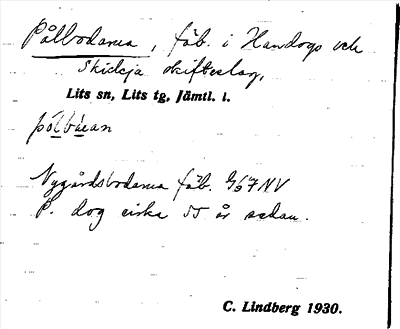 Pålbodarna, fäb. i Handogs och
Skideja skifteslag,
Lits sn, Lits tg, Jämtl. l.
Nygårdsbodarna fäb. 967NV
P. dog cirka 55 år sedan.
C. Lindberg 1930.